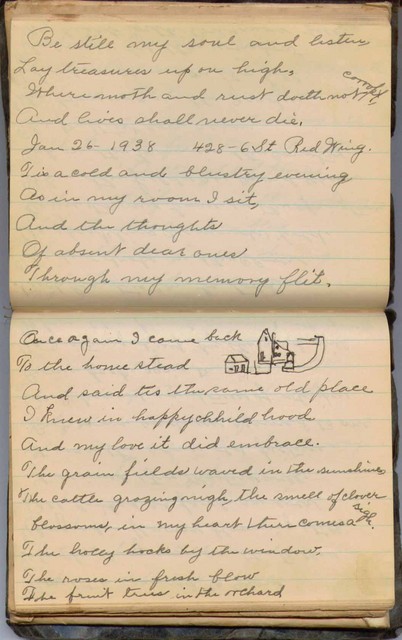 Be still my soul and listen
Lay treasures up on high,
Where moth and rust doeth not
And lives shall never die.
Jan 26 - 1938 428-6 St Red Wing.
Tis a cold and blustry evening
As in my room I sit,
And the thoughts
Of absent dear ones
Through my memory flit.
Once again I came back
To the home stead
And said tis the same old place
I Knew in happy chhild hood
And my love it did embrace.
The grain fields waved in the sunshine,
The cattle grazing nigh, the smell of clover
blossoms, in my heart there comes a sigh.
The holly hocks by the window,
The roses in fresh blow
The fruit trees in the orchard